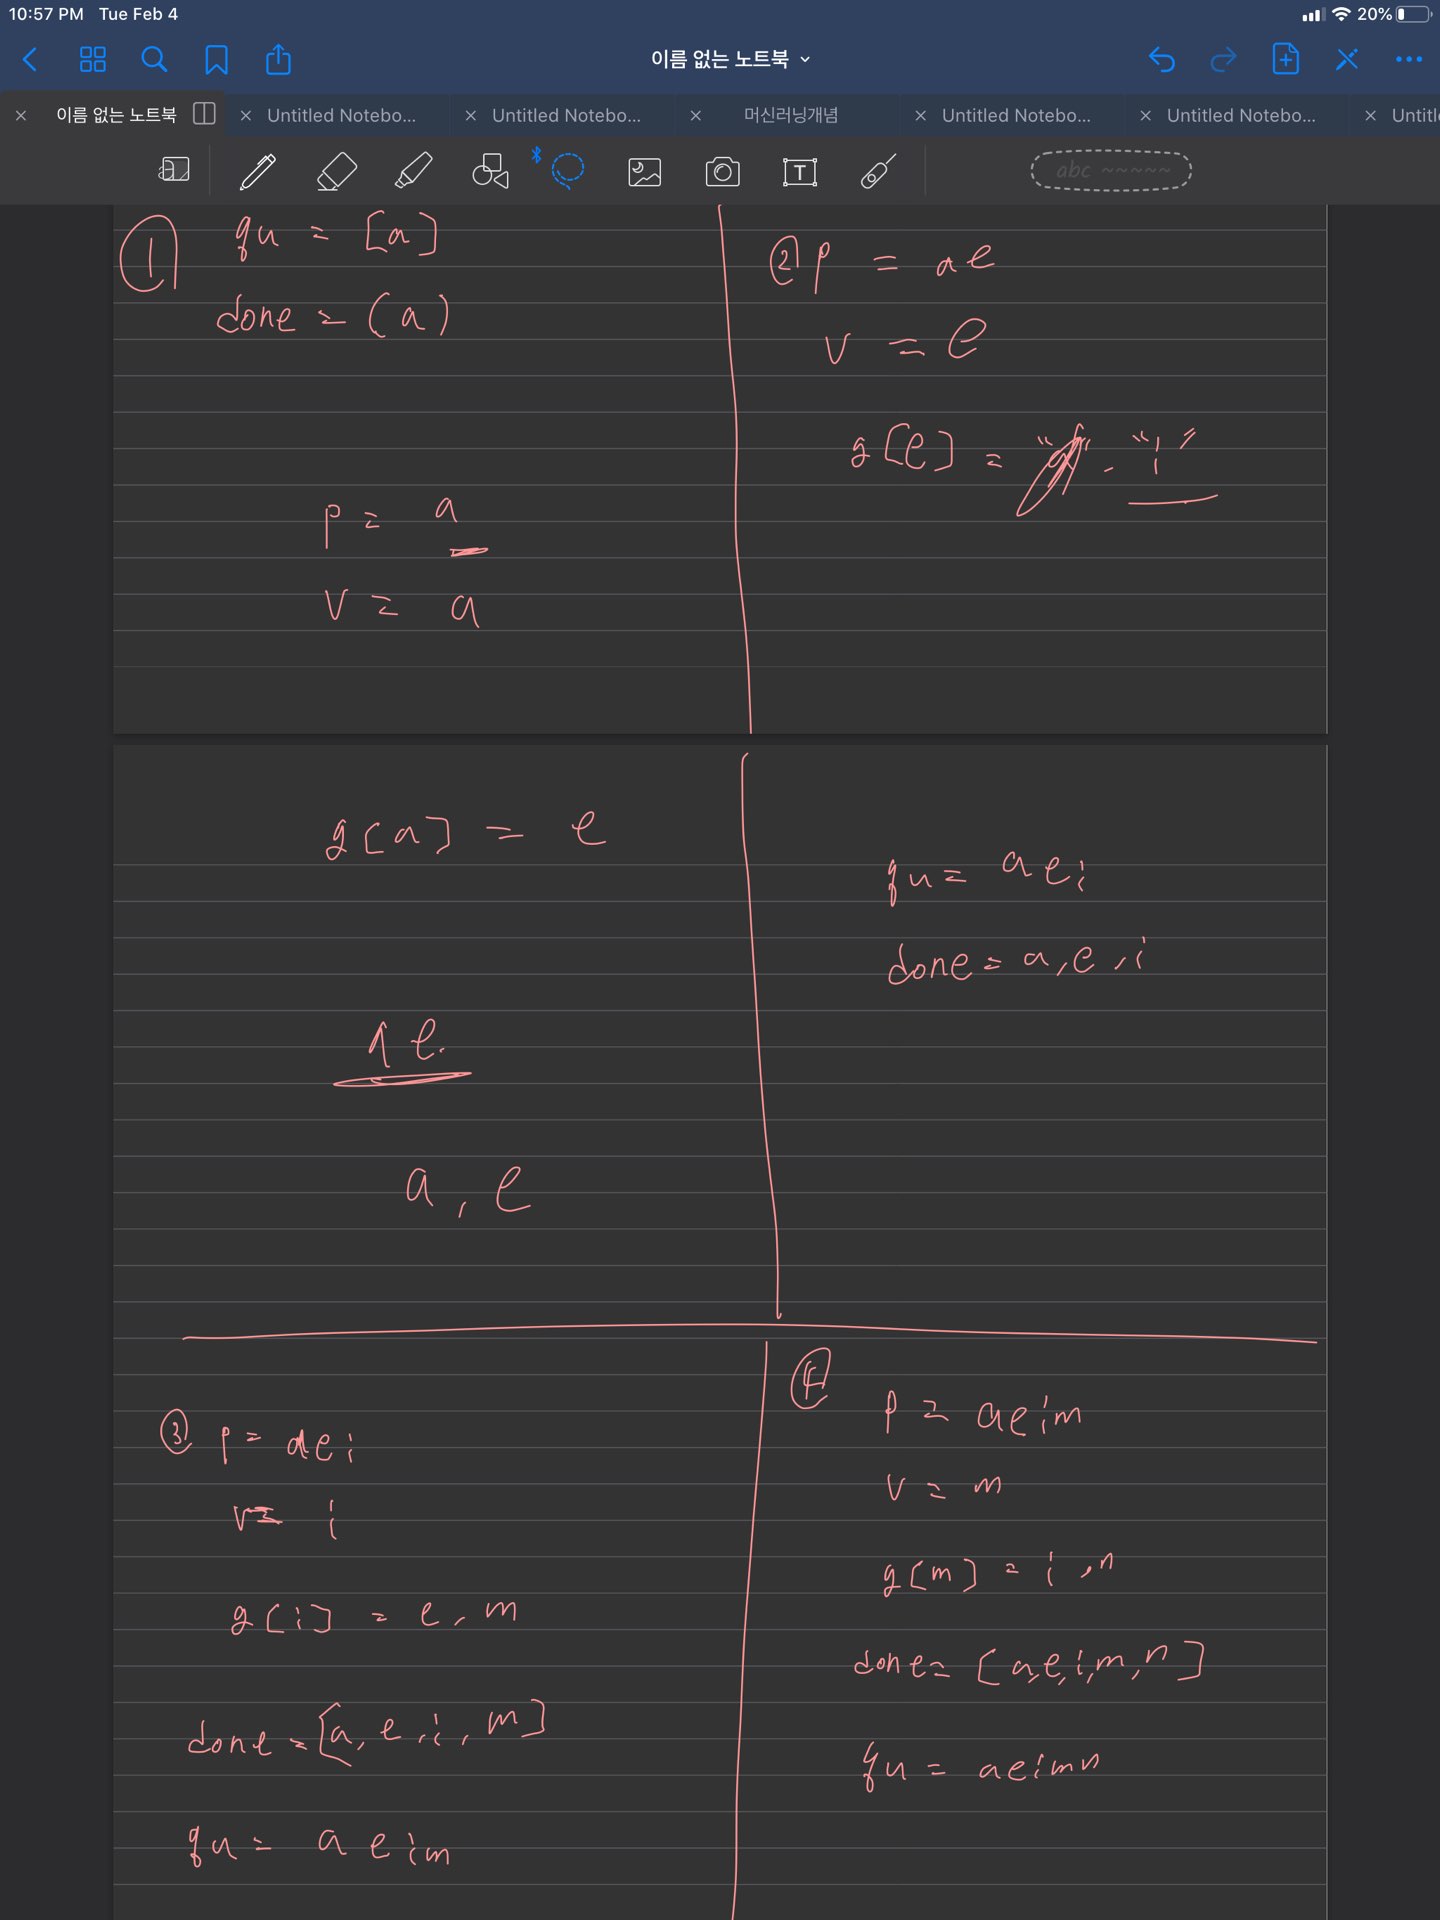 10:57 PM Tue Feb 4
20%
이름 없는 노트북
이름 없는 노트북
Untitled Notebo...
Untitled Notebo...
머신러닝개념
Untitled Notebo...
Untitled Notebo...
Untitl
T
abc ~~~~~
① qu = [a]
done = (a)
p = a
v = a
g[a] = e
a e.
a, e
② p = a e
v = e
g[e] = "a", "i"
qu = a e i
done = a, e, i
③ p = a e i
v = i
g[i] = e, m
done = [a, e, i, m]
qu = a e i m
④ p = a e i m
v = m
g[m] = i, n
done = [a, e, i, m, n]
qu = a e i m n